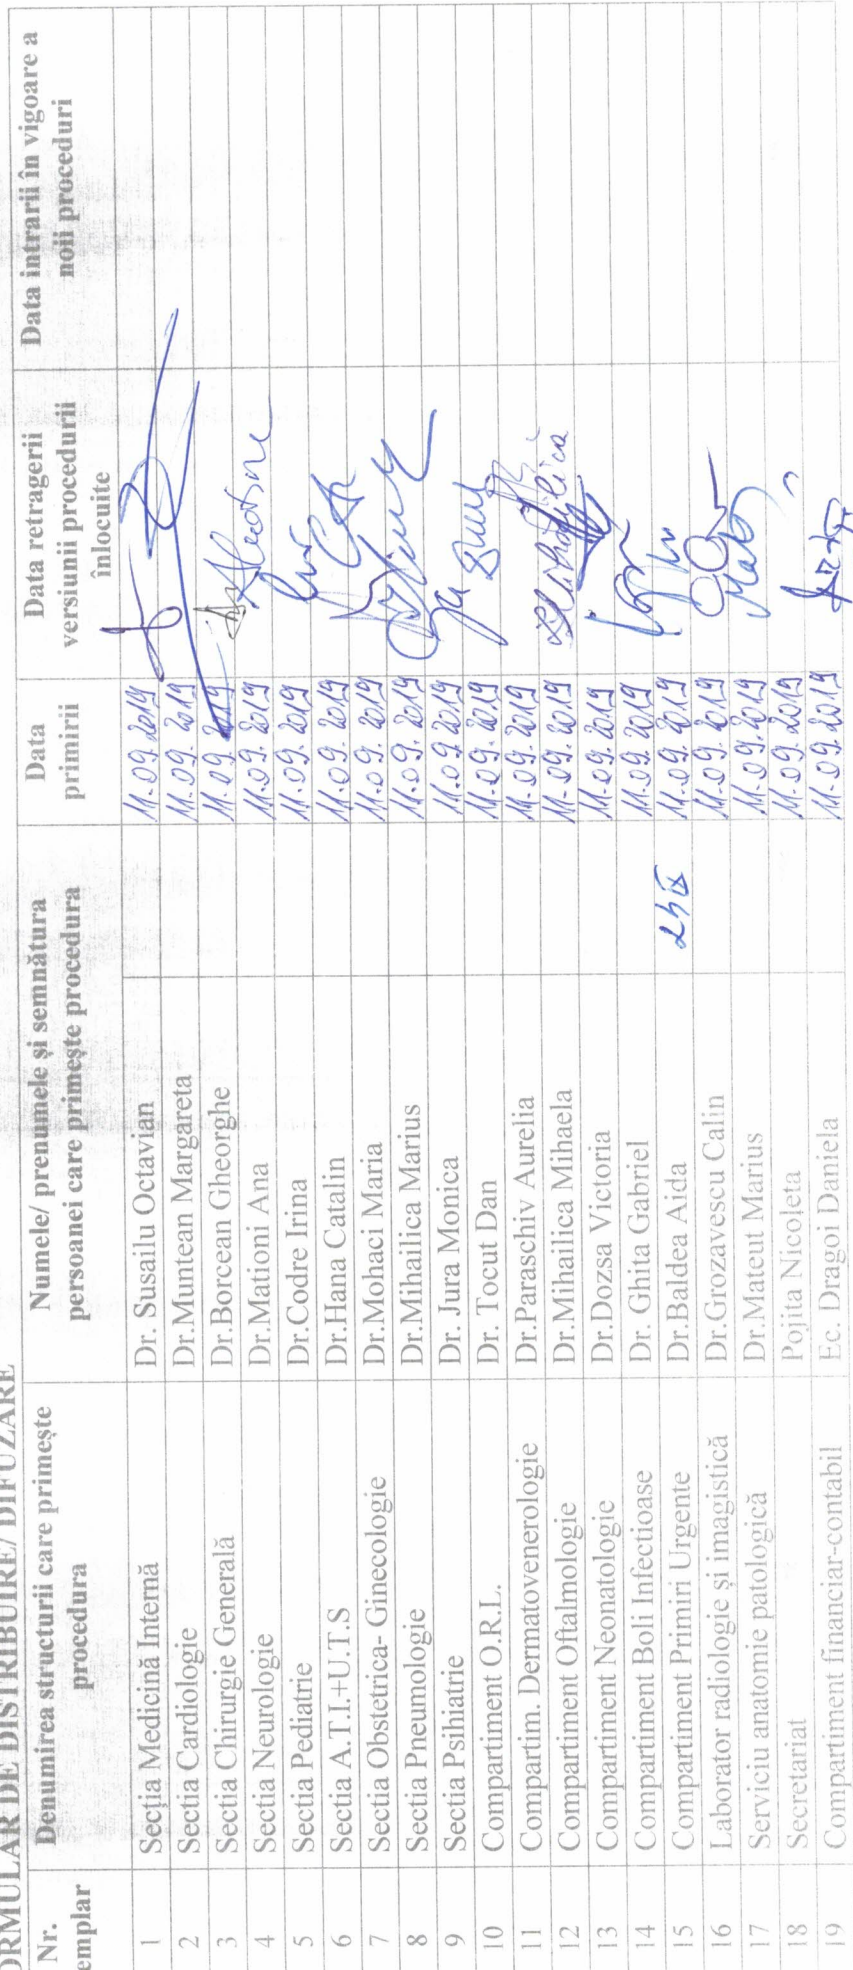 ORMULAR DE DISTRIBUIRE/ DIFUZARE
Nr. emplar | Denumirea structurii care primește procedura | Numele/ prenumele și semnătura persoanei care primește procedura | Data primirii | Data retragerii versiunii procedurii înlocuite | Data intrarii în vigoare a noii proceduri
1 | Secția Medicină Internă | Dr. Susailu Octavian | 11.09.2019
2 | Sectia Cardiologie | Dr.Muntean Margareta | 11.09.2019
3 | Sectia Chirurgie Generală | Dr.Borcean Gheorghe | 11.09.2019
4 | Sectia Neurologie | Dr.Mationi Ana | 11.09.2019
5 | Sectia Pediatrie | Dr.Codre Irina | 11.09.2019
6 | Sectia A.T.I.+U.T.S | Dr.Hana Catalin | 11.09.2019
7 | Sectia Obstetrica- Ginecologie | Dr.Mohaci Maria | 11.09.2019
8 | Sectia Pneumologie | Dr.Mihailica Marius | 11.09.2019
9 | Sectia Psihiatrie | Dr. Jura Monica | 11.09.2019
10 | Compartiment O.R.L. | Dr. Tocut Dan | 11.09.2019
11 | Compartim. Dermatovenerologie | Dr.Paraschiv Aurelia | 11.09.2019
12 | Compartiment Oftalmologie | Dr.Mihailica Mihaela | 11.09.2019
13 | Compartiment Neonatologie | Dr.Dozsa Victoria | 11.09.2019
14 | Compartiment Boli Infectioase | Dr. Ghita Gabriel | 11.09.2019
15 | Compartiment Primiri Urgente | Dr.Baldea Aida | 11.09.2019
16 | Laborator radiologie și imagistică | Dr.Grozavescu Calin | 11.09.2019
17 | Serviciu anatomie patologică | Dr.Mateut Marius | 11.09.2019
18 | Secretariat | Pojita Nicoleta | 11.09.2019
19 | Compartiment financiar-contabil | Ec. Dragoi Daniela | 11.09.2019